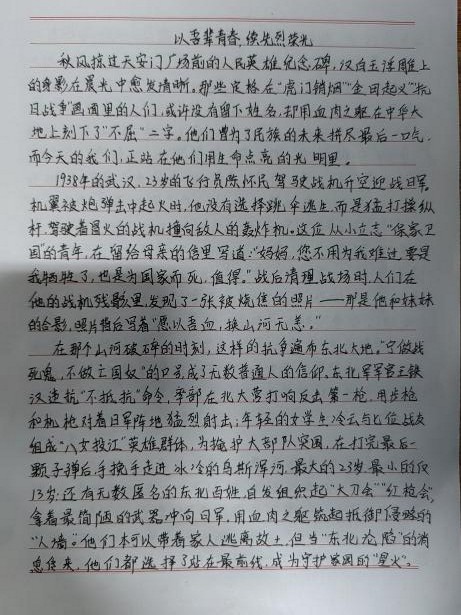 以吾辈青春,续先烈荣光
秋风掠过天安门广场前的人民英雄纪念碑,汉白玉浮雕上
的身影在晨光中愈发清晰。那些定格在"虎门销烟""金田起义""抗
日战争"画面里的人们,或许没有留下姓名,却用血肉之躯在中华大
地上刻下了"不屈"二字。他们曾为了民族的未来拼尽最后一口气,
而今天的我们,正站在他们用生命点亮的光明里。
1938年的武汉,23岁的飞行员陈怀民驾驶战机升空迎战日军。
机翼被炮弹击中起火时,他没有选择跳伞逃生,而是猛打操纵
杆,驾驶着冒火的战机撞向敌人的轰炸机。这位从小立志"保家卫
国"的青年,在留给母亲的信里写道:"妈妈,您不用为我难过,要是
我牺牲了,也是为国家而死,值得。"战后清理战场时,人们在
他的战机残骸里发现了一张被烧焦的照片——那是他和妹妹
的合影,照片背后写着"愿以吾血,换山河无恙。"
在那个山河破碎的时刻,这样的抗争遍布东北大地。"宁做战
死鬼,不做亡国奴"的口号成了无数普通人的信仰。东北军军官王铁
汉违抗"不抵抗"命令,率部在北大营打响反击第一枪,用步枪
和机枪对着日军阵地猛烈射击;年轻的女学生冷云与七位战友
组成"八女投江"英雄群体,为掩护大部队突围,在打完最后一
颗子弹后,手挽手走进冰冷的乌斯浑河,最大的23岁,最小的仅
13岁;还有无数匿名的东北百姓,自发组织起"大刀会""红枪会",
拿着最简陋的武器冲向日军,用血肉之躯筑起抵御侵略的
"人墙"。他们本可以带着家人逃离故土,但当"东北沦陷"的消
息传来,他们都选择了站在最前线,成为守护家园的"星火"。